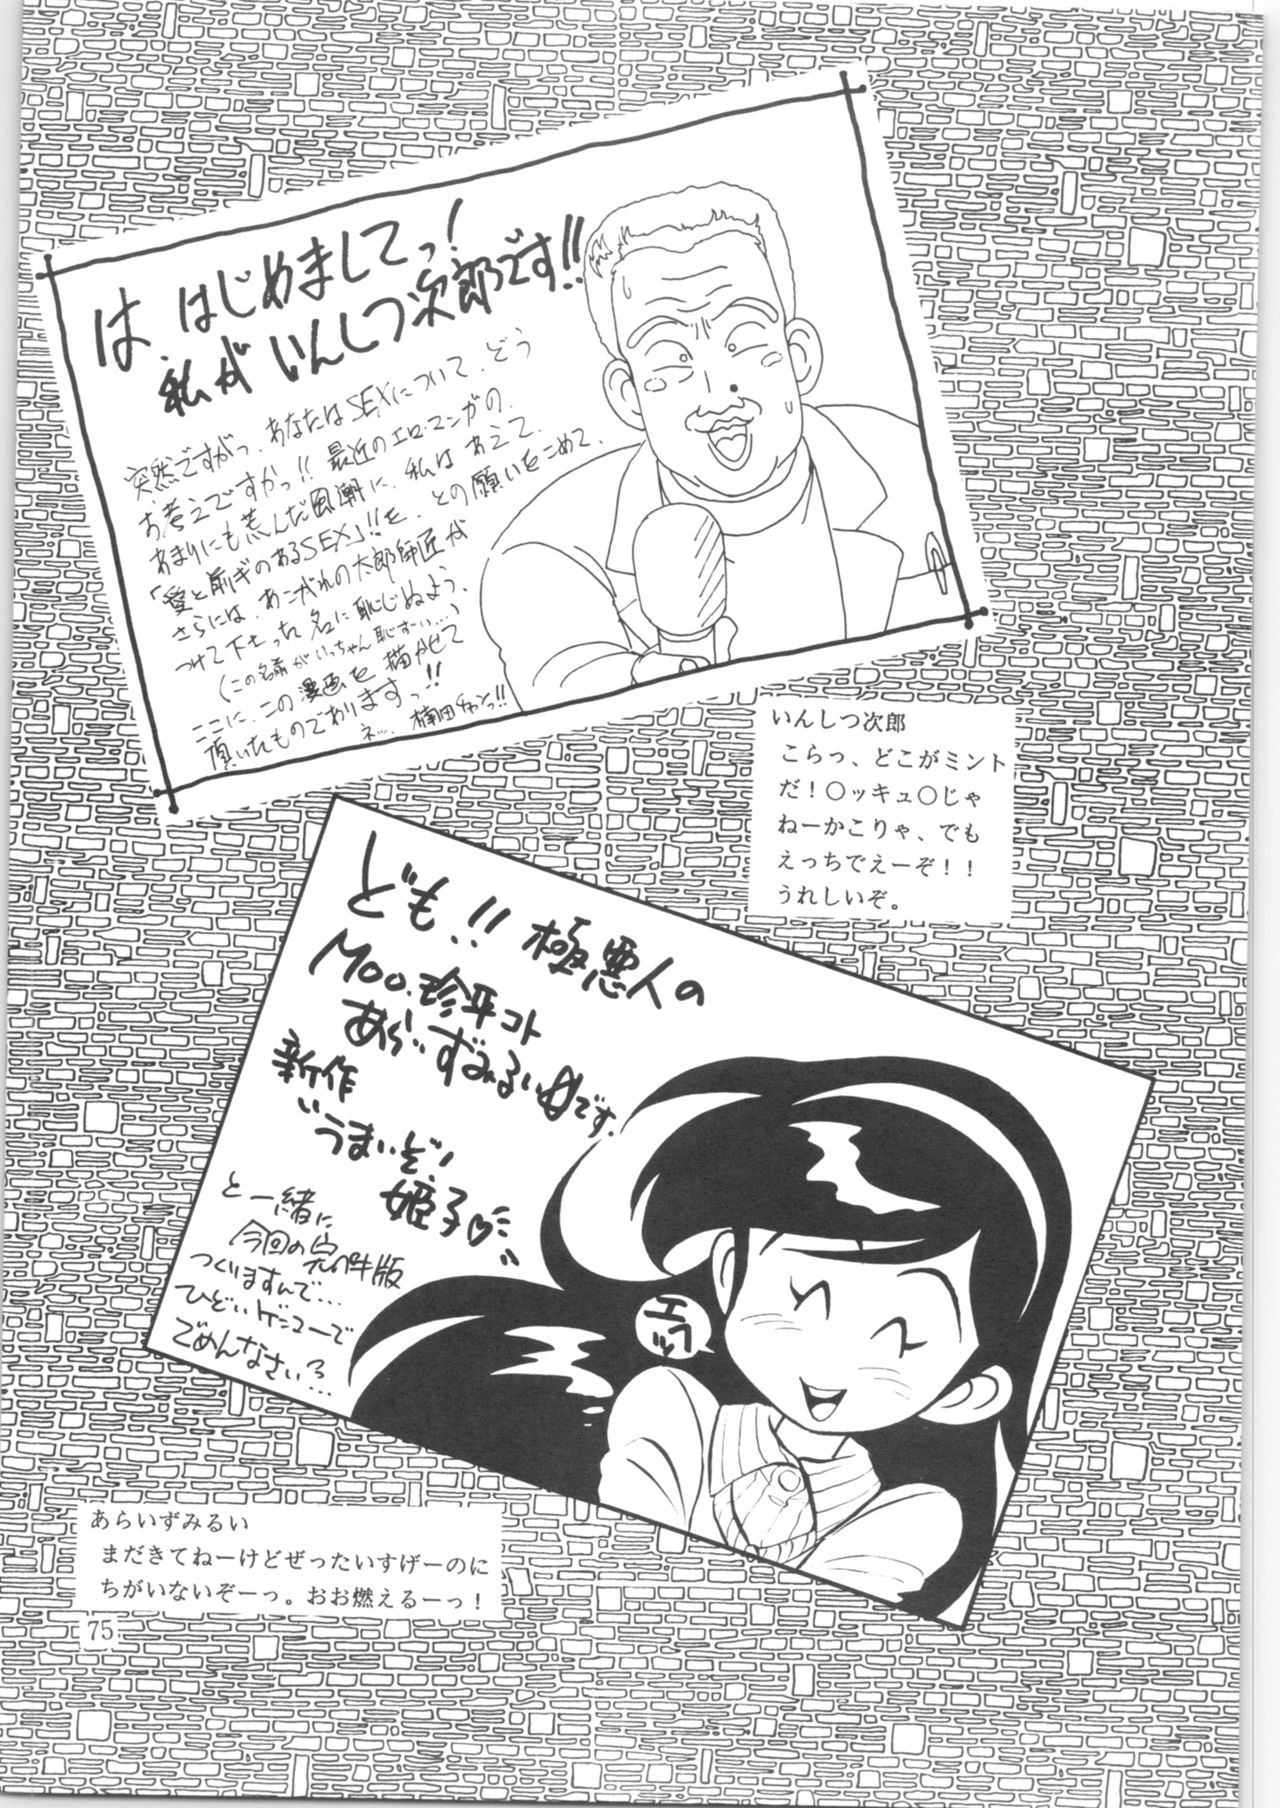 は、はじめましてっ!
私がいんしつ次郎です!!
突然ですがっ、あなたはSEXについて、どう
お考えですかっ!! 最近のエロ・マンガの、
あまりにも荒んだ風潮に、私はあえて、
「愛と前ぎのあるSEX」!!を、との願いをこめて、
さらには、あこがれの太郎師匠が
つけて下さった名に恥じぬよう、
(この名前がいっちゃん恥ずい…)
ここに、この漫画を描かせて
頂いたものでありますっ!!
いんしつ次郎
こらっ、どこがミント
だ!○ッキュ○じゃ
ねーかこりゃ、でも
えっちでえーぞ!!
うれしいぞ。
ども!!極悪人の
Moo.珍平コト
あらいずみるいです.
新作
うまいぞ!
姫子♡
と一緒に
今回の完ペキ版
つくりますんで…
ひどいゲンコーで
ごめんなさい…
エッフ
あらいずみるい
まだきてねーけどぜったいすげーのに
ちがいないぞーっ。おお燃えるーっ!
75